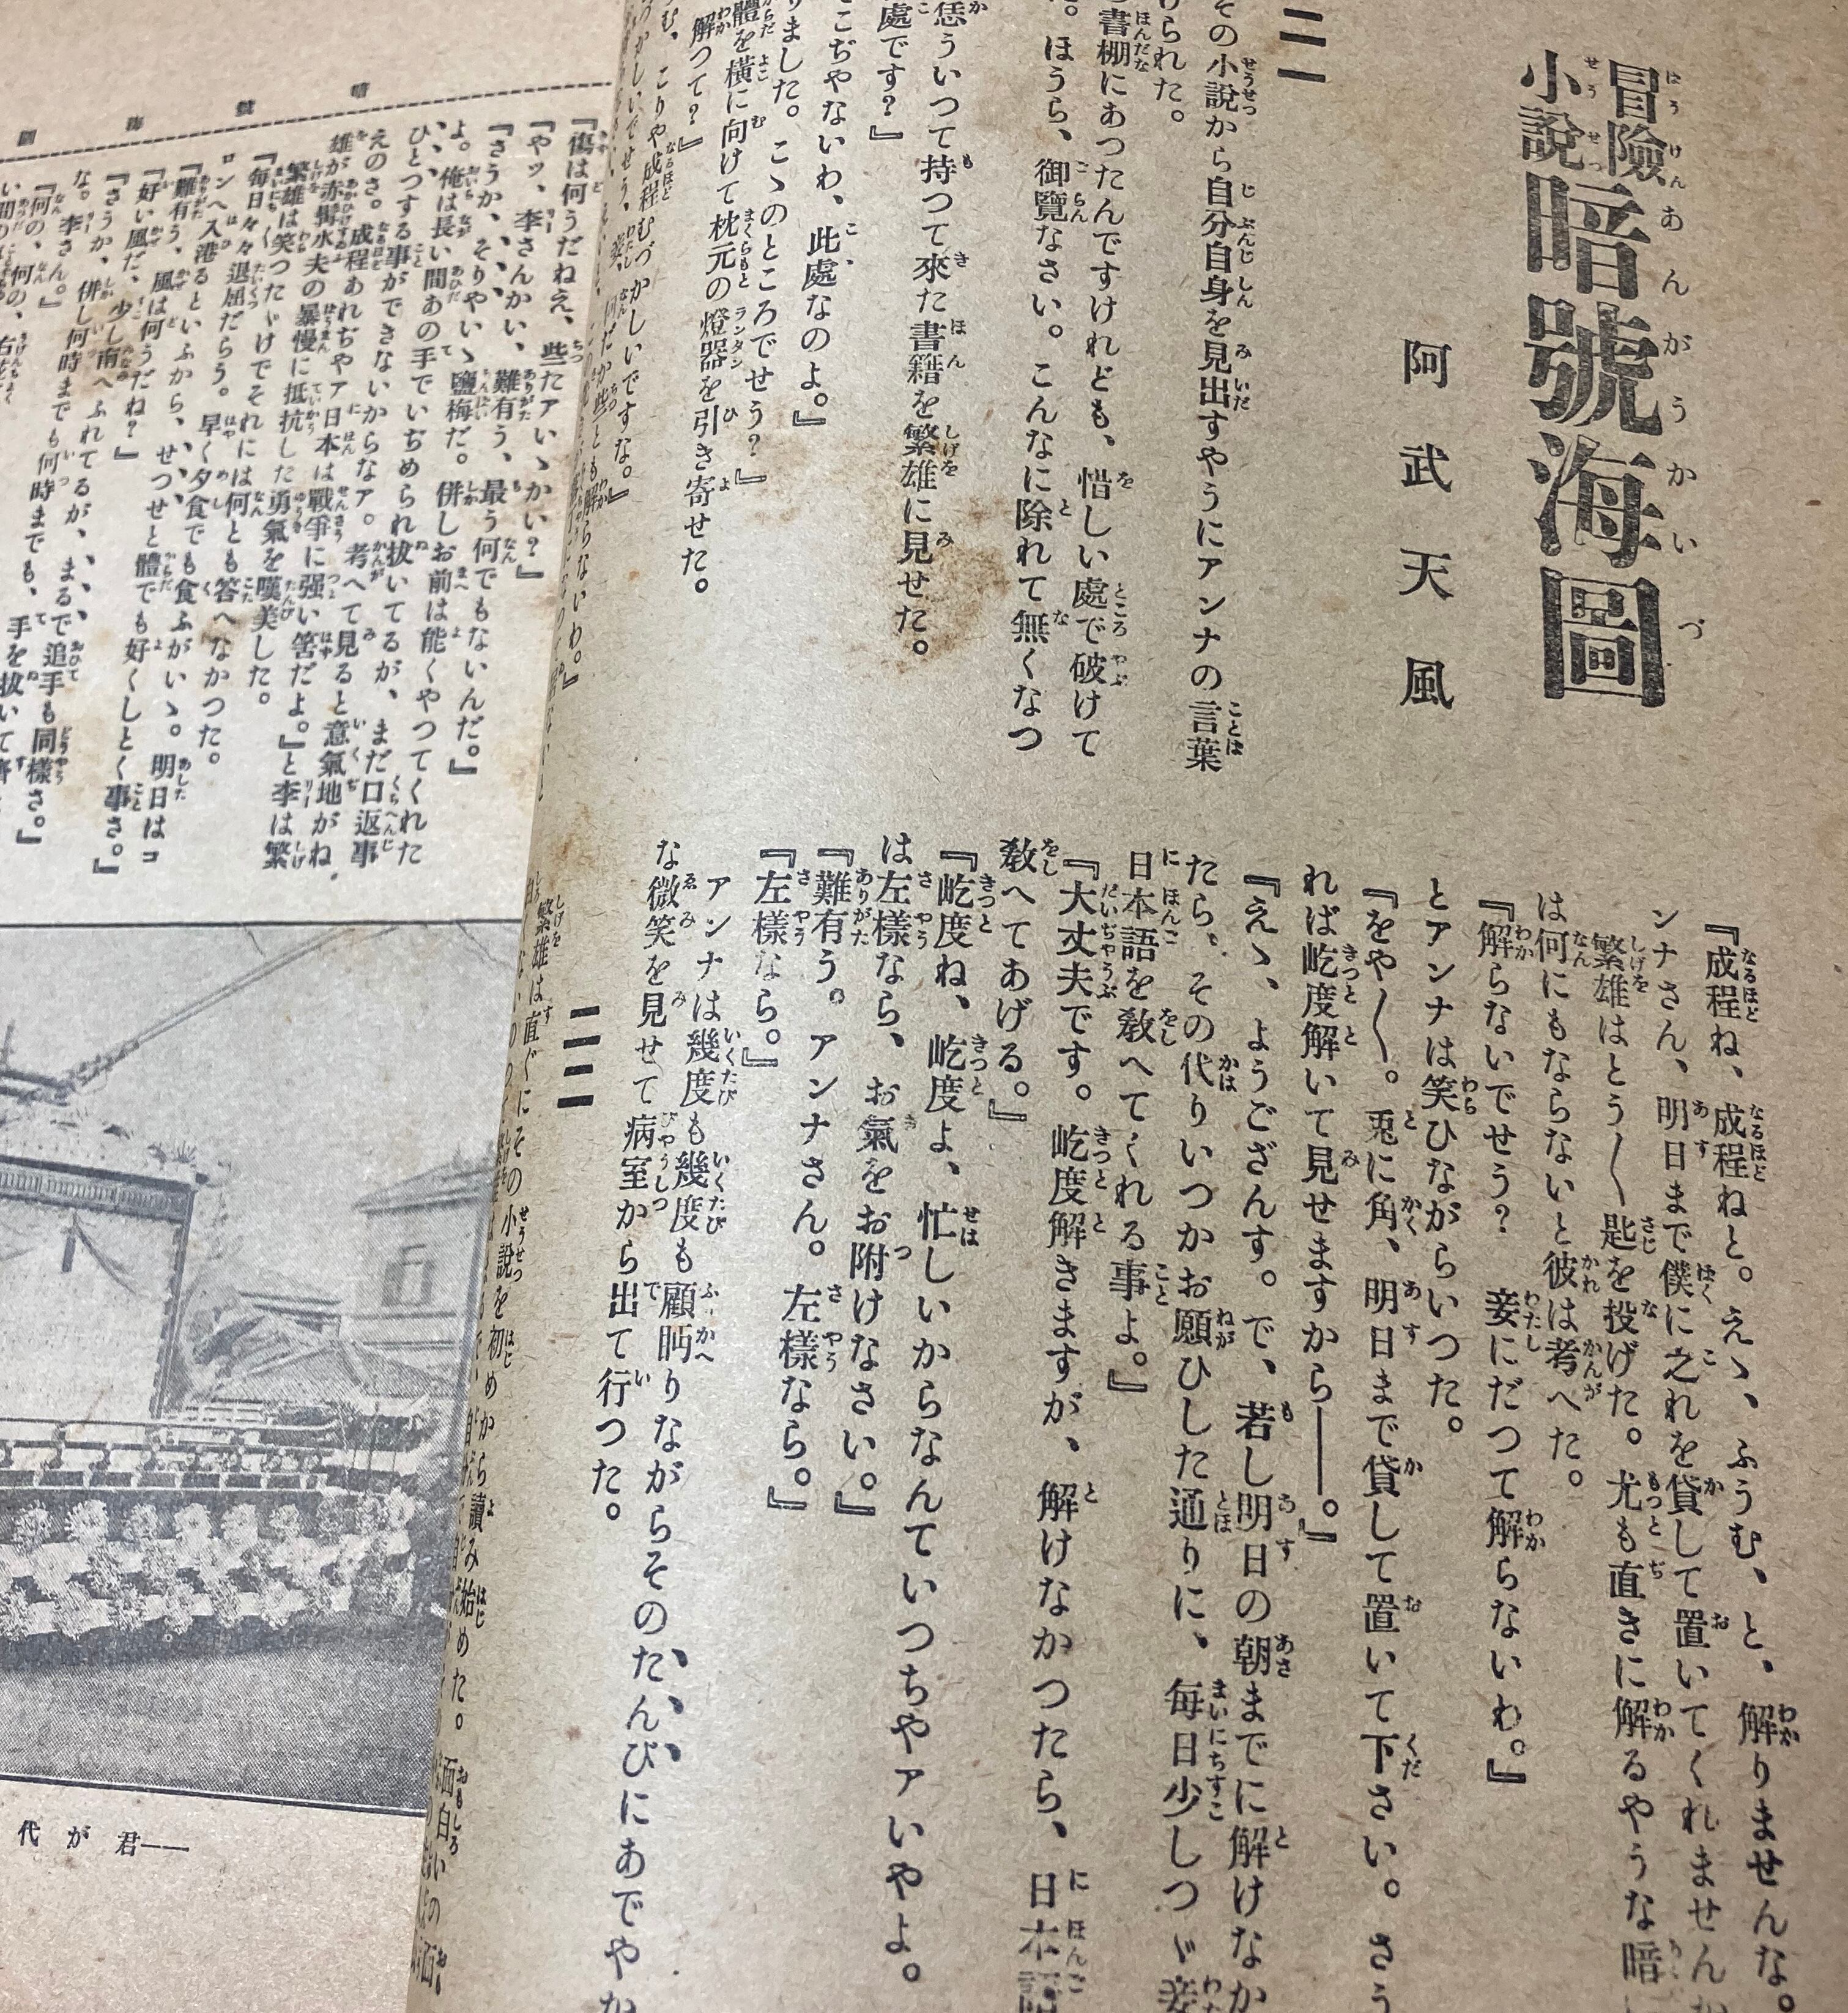 冒險小說 暗號海圖
阿武天風
二一
その小說から自分自身を見出すやうにアンナの言葉
けられた。
書棚にあつたんですけれども、惜しい處で破けて
。ほうら、御覽なさい。こんなに除れて無くなつ
恁ういつて持つて來た書籍を繁雄に見せた。
處です？』
こぢやないわ、此處なのよ。』
りました。こゝのところでせう？』
體を橫に向けて枕元の燈器を引き寄せた。
解つて？』
む、こりや成程むづかしいですな。』
『成程ね、成程ねと。えゝ、ふうむ、と、解りませんな。
ンナさん、明日まで僕に之れを貸して置いてくれません
繁雄はとう〳〵匙を投げた。尤も直きに解るやうな暗
は何にもならないと彼は考へた。
『解らないでせう？　妾にだつて解らないわ。』
とアンナは笑ひながらいつた。
『をや〳〵。兎に角、明日まで貸して置いて下さい。さう
れば屹度解いて見せますから――。』
『えゝ、ようござんす。で、若し明日の朝までに解けなか
たら、その代りいつかお願ひした通りに、每日少しつゞ妾
日本語を敎へてくれる事よ。』
『大丈夫です。屹度解きますが、解けなかつたら、日本語
敎へてあげる。』
『屹度ね、屹度よ、忙しいからなんていつちやアいやよ。
は左樣なら、お氣をお附けなさい。』
『難有う。アンナさん。左樣なら。』
『左樣なら。』
アンナは幾度も幾度も顧眄りながらそのたんびにあでやか
な微笑を見せて病室から出て行つた。
二二
繁雄は直ぐにその小說を初めから讀み始めた。面白いの
暗號海圖
『傷は何うだねえ、些たアいゝかい？』
『やッ、李さんかい、難有う、最う何でもないんだ。』
『さうか、そりやいゝ鹽梅だ。併しお前は能くやつてくれた
よ。俺は長い間あの手でいぢめられ拔いてるが、まだ口返事
ひとつする事ができないからなア。考へて見ると意氣地がね
えのさ。成程あれぢやア日本は戰爭に强い筈だよ。』と李は繁
雄が赤髯水夫の暴慢に抵抗した勇氣を嘆美した。
繁雄は笑つたゞけでそれには何とも答へなかつた。
『每日々々退屈だらう。早く夕食でも食ふがいゝ。明日はコ
ロンへ入港るといふから、せつせと體でも好くしとく事さ。』
『難有う、風は何うだね？』
『好い風だ、少し南へふれてるが、まるで追手も同樣さ。』
『さうか、併し何時までも何時までも、手を拔いて
な。李さん。』
『何の、何の、
代が君――